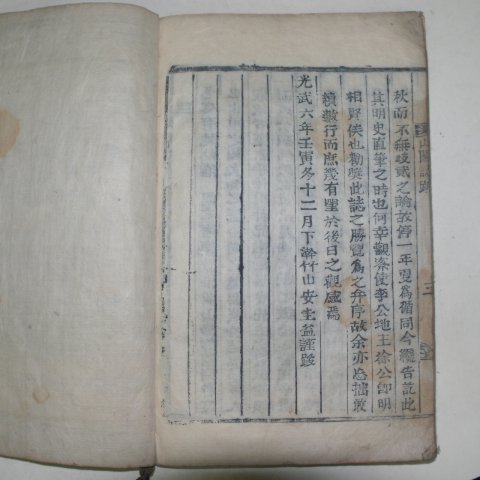 秋而不無岐貳之論故停一年更為脩同今纔告訖此
其明史直筆之時也何幸觀察使李公地主徐公即明
相賢侯也勸奬此誌之勝覽為之弁序故余亦忘拙敢
續數行而庶幾有望於後日之觀感焉
光武六年壬寅冬十二月下澣竹山安圭益謹跋
誌跋
三